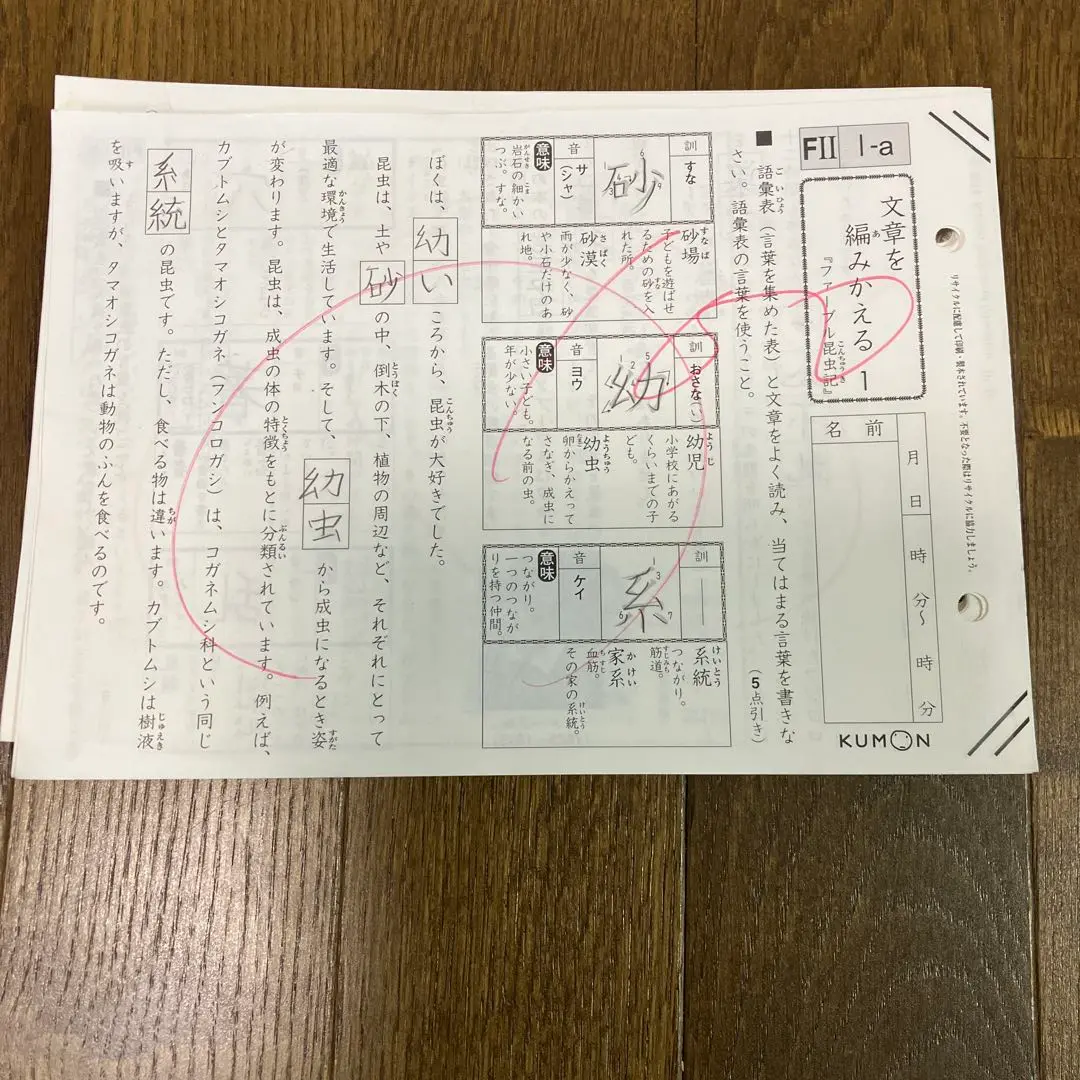 FⅡ 1-a
文章を
編みかえる 1
『ファーブル昆虫記』
リサイクルに配慮して印刷・製本されています。不要となった際はリサイクルに協力しましょう。
名前
月 日 時 分〜 時 分
KUMON
■ 語彙表（言葉を集めた表）と文章をよく読み、当てはまる言葉を書きな
さい。語彙表の言葉を使うこと。
（5点引き）
訓 すな
砂
音 サ（シャ）
意味
岩石の細かい
つぶ。すな。
砂場
子どもを遊ばせ
るための砂を入
れた所。
砂漠
雨が少なく、砂
や小石だけのあ
れ地。
訓 おさな（い）
幼
音 ヨウ
意味
小さい子ども。
年が少ない。
幼児
小学校にあがる
くらいまでの子
ども。
幼虫
卵からかえって
さなぎ、成虫に
なる前の虫。
訓 ―
系
音 ケイ
意味
つながり。
一つのつなが
りを持つ仲間。
系統
つながり。
筋道。
家系
血筋。
その家の系統。
ぼくは、幼いころから、昆虫が大好きでした。
昆虫は、土や砂の中、倒木の下、植物の周辺など、それぞれにとって
最適な環境で生活しています。そして、幼虫から成虫になるとき姿
が変わります。昆虫は、成虫の体の特徴をもとに分類されています。例えば、
カブトムシとタマオシコガネ（フンコロガシ）は、コガネムシ科という同じ
系統の昆虫です。ただし、食べる物は違います。カブトムシは樹液
を吸いますが、タマオシコガネは動物のふんを食べるのです。